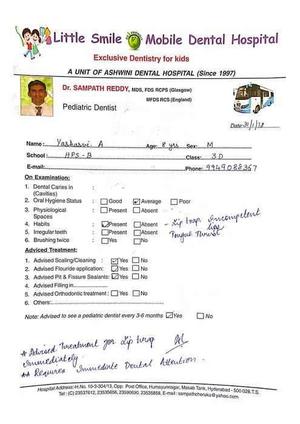 Little Smile Mobile Dental Hospital
Exclusive Dentistry for kids
A UNIT OF ASHWINI DENTAL HOSPITAL (Since 1997)
Dr. SAMPATH REDDY, MDS, FDS RCPS (Glasgow)
MFDS RCS (England)
Pediatric Dentist
Date:
Name: Yashasvi A Age: 8 yrs Sex: M
School: HPS-B Class: 3D
E-mail: Phone: 9949088367
On Examination:
1. Dental Caries in :
(Cavities)
2. Oral Hygiene Status : Good Average Poor
3. Physiological : Present Absent
Spaces
4. Habits : Present Absent - Lip trap, Incompetent lips
Tongue Thrust
5. Irregular teeth : Present Absent
6. Brushing twice : Yes No
Adviced Treatment:
1. Advised Scaling/Cleaning : Yes No
2. Advised Flouride application: Yes No
3. Advised Pit & Fissure Sealants: Yes No
4. Advised Filling in
5. Advised Orthodontic treatment : Yes No
6. Any Others
Note: Advised to see a pediatric dentist every 3-6 months Yes No
* Advised Treatment for Lip trap
Immediately.
** Requires Immediate Dental Attention.
Hospital Address: H.No. 10-3-304/13, Opp. Post Office, Humayunnagar, Masab Tank, Hyderabad - 500 028, T.S.